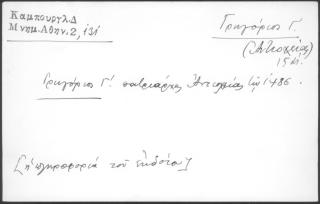 Καμπουργλ.Δ
Μνημ.Αθην.2,131
Γρηγόριος Γ.
(Αντιοχείας)
15 αι.
Γρηγόριος Γ' πατριάρχης Ἀντιοχείας 1486.
[ἡ πληροφορία τοῦ ἐκδότου]